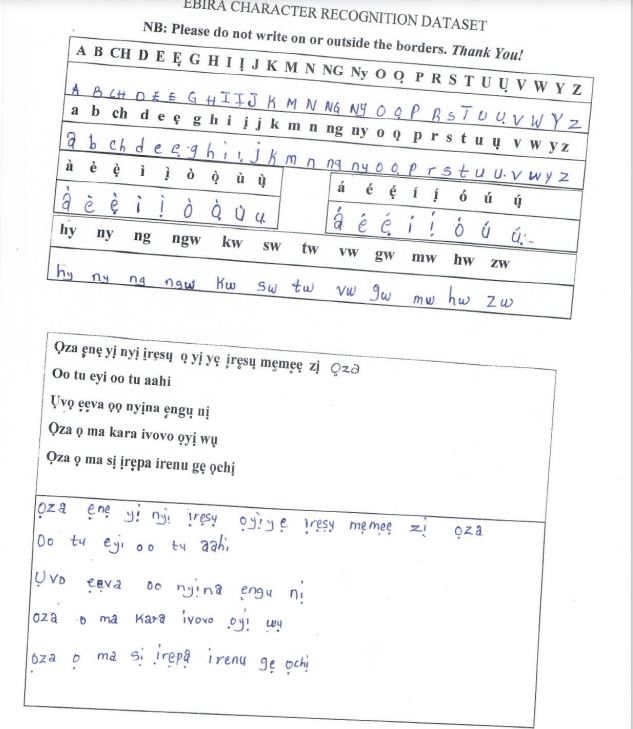 EBIRA CHARACTER RECOGNITION DATASET
NB: Please do not write on or outside the borders. Thank You!
A B CH D E Ẹ G H I Ị J K M N NG Ny O Ọ P R S T U Ụ V W Y Z
A B CH D E E G H I I J K M N NG NY O O P R S T U Ụ V W Y Z
a b ch d e ẹ g h i ị j k m n ng ny o ọ p r s t u ụ v w y z
a b ch d e ẹ g h i ị j k m n ng ny o o p r s t u u. v w y z
à è ẹ̀ ì ị̀ ò ọ̀ ù ụ̀
à è ẹ̀ ì ị̀ ò ọ̀ ù u.
á é ẹ́ í ị́ ó ú ụ́
á é ẹ́ í ị́ ó ú ụ́
hy ny ng ngw kw sw tw vw gw mw hw zw
hy ny ng ngw kw sw tw vw gw mw hw zw
Ọza ẹnẹ yị nyị ịrẹsụ ọ yị yẹ ịrẹsụ mẹmẹẹ zị ọza
Oo tu eyi oo tu aahi
Ụvọ ẹẹva ọọ nyịna ẹngụ nị
Ọza ọ ma kara ivovo ọyị wụ
Ọza ọ ma sị ịrẹpa irenu gẹ ọchị
ọza ẹnẹ yị nyị ịrẹsụ ọyị yẹ ịrẹsụ mẹmẹẹ zị ọza
Oo tu eyi oo tu aahi
Ụvo ẹẹva oo nyịna ẹngu nị
oza o ma kara ivovo ọyị wụ
ọza ọ ma sị ịrẹpạ irenu gẹ ọchị